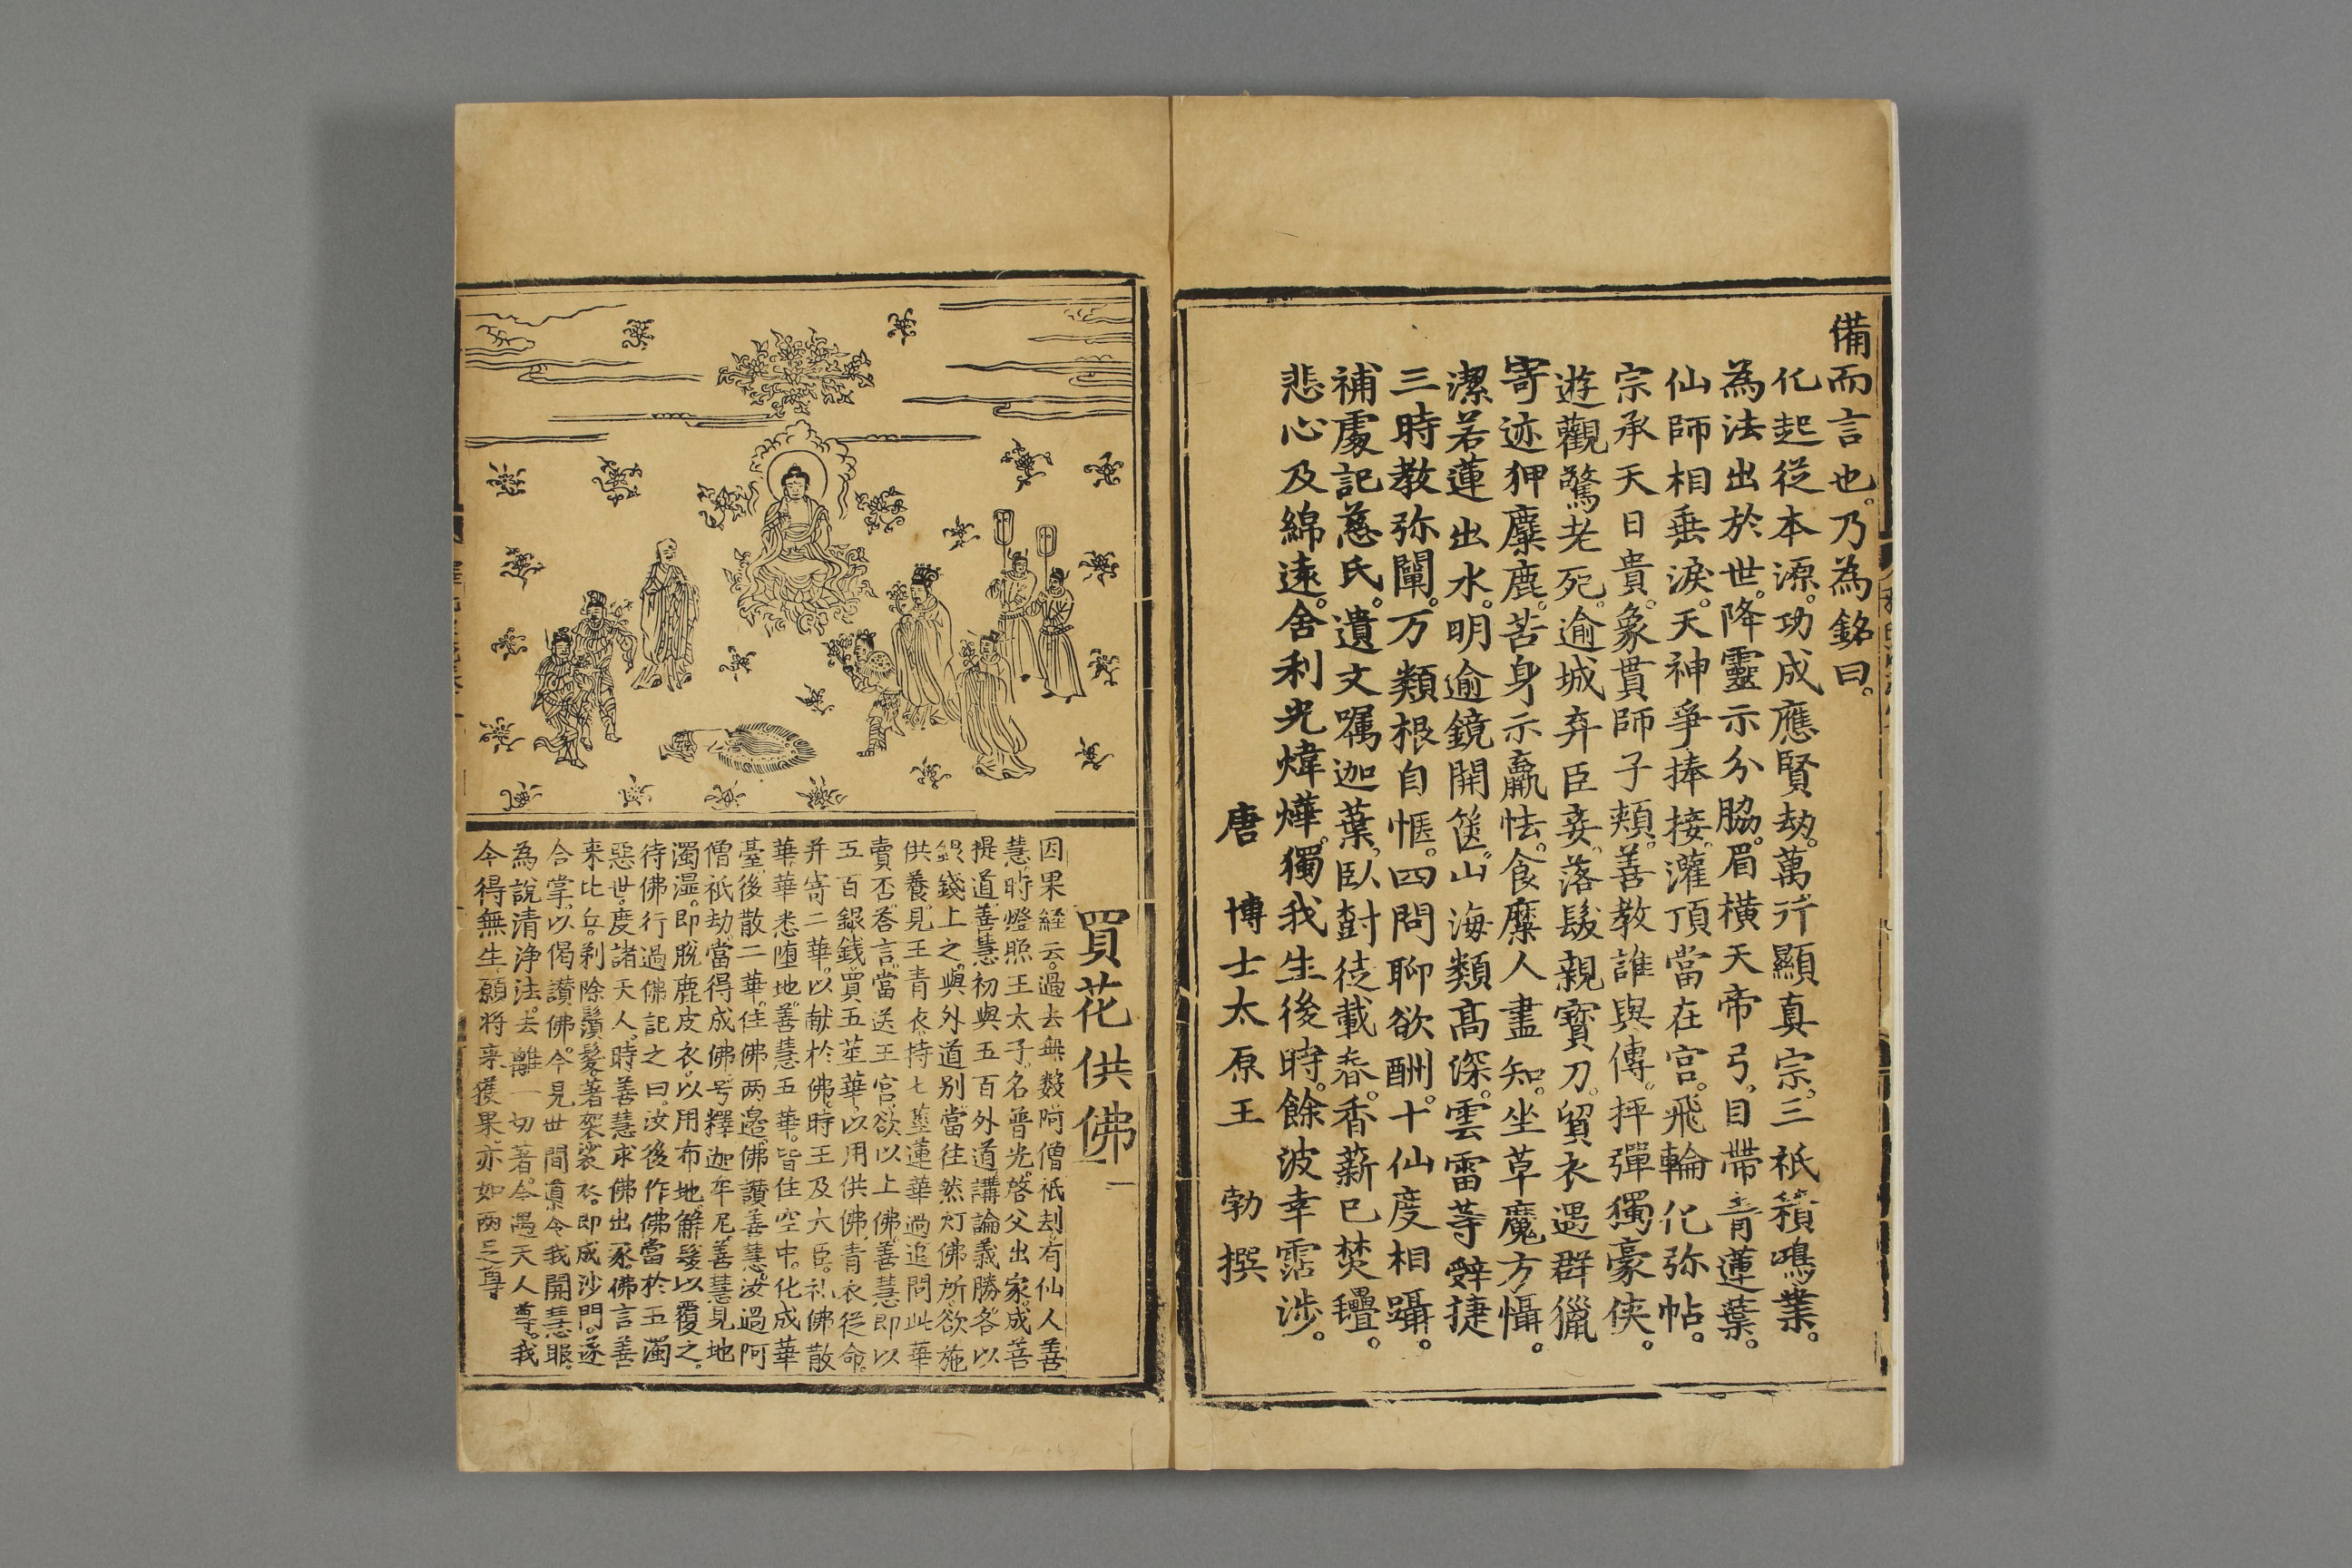 備而言也。乃為銘曰。
化起從本源。功成應賢劫。萬行顯真宗。三祇積鳴業。
為法出於世。降靈示分脇。眉橫天帝弓。目帶青蓮葉。
仙師相垂淚。天神爭捧接。灌頂當在宮。飛輪化弥帖。
宗承天日貴。象貫師子頰。善教誰與傳。抨彈獨豪俠。
遊觀驚老死。逾城弃臣妾。落髮親寶刀。貿衣遇群獵
寄迹狎麋鹿。苦身示羸怯。食糜人盡知。坐草魔方懾。
潔若蓮出水。明逾鏡開篋。山海類髙深。雲雷等辤捷
三時教弥闡。万類根自愜。四問聊欲酬。十仙度相躡。
補處記慈氏。遺文囑迦葉。臥對徒載春。香薪已焚㲲。
悲心及綿遠。舍利光煒燁。獨我生後時。餘波幸霑涉。
唐　博士太原王　勃　撰
買花供佛
因果経云。過去無數阿僧祇刦。有仙人善
慧。時燈照王太子。名普光。啓父出家。成菩
提道。善慧初與五百外道講論義勝。各以
銀錢上之。與外道别。當往然灯佛所。欲施
供養。見王青衣持七莖蓮華過。追問此華
賣否。荅言。當送王宮。欲以上佛。善慧即以
五百銀錢。買五莖華。以用供佛。青衣從命。
并寄二華。以献於佛。時王及大臣。礼佛散
華。華悉堕地。善慧五華。皆住空中。化成華
臺。後散二華。住佛两邉。佛讚善慧。汝過阿
僧祇劫。當得成佛。号釋迦牟尼。善慧見地
濁濕。即脫鹿皮衣。以用布地。解髮以覆之。
待佛行過。佛記之曰。汝後作佛。當於五濁
惡世。度諸天人。時善慧求佛出家。佛言善
来比丘。剃除鬚髮。著袈裟衣。即成沙門。遂
合掌。以偈讚佛。今見世間導。令我開慧眼。
為說清浄法。去離一切著。今遇天人尊。我
今得無生。願将来獲果。亦如两足尊